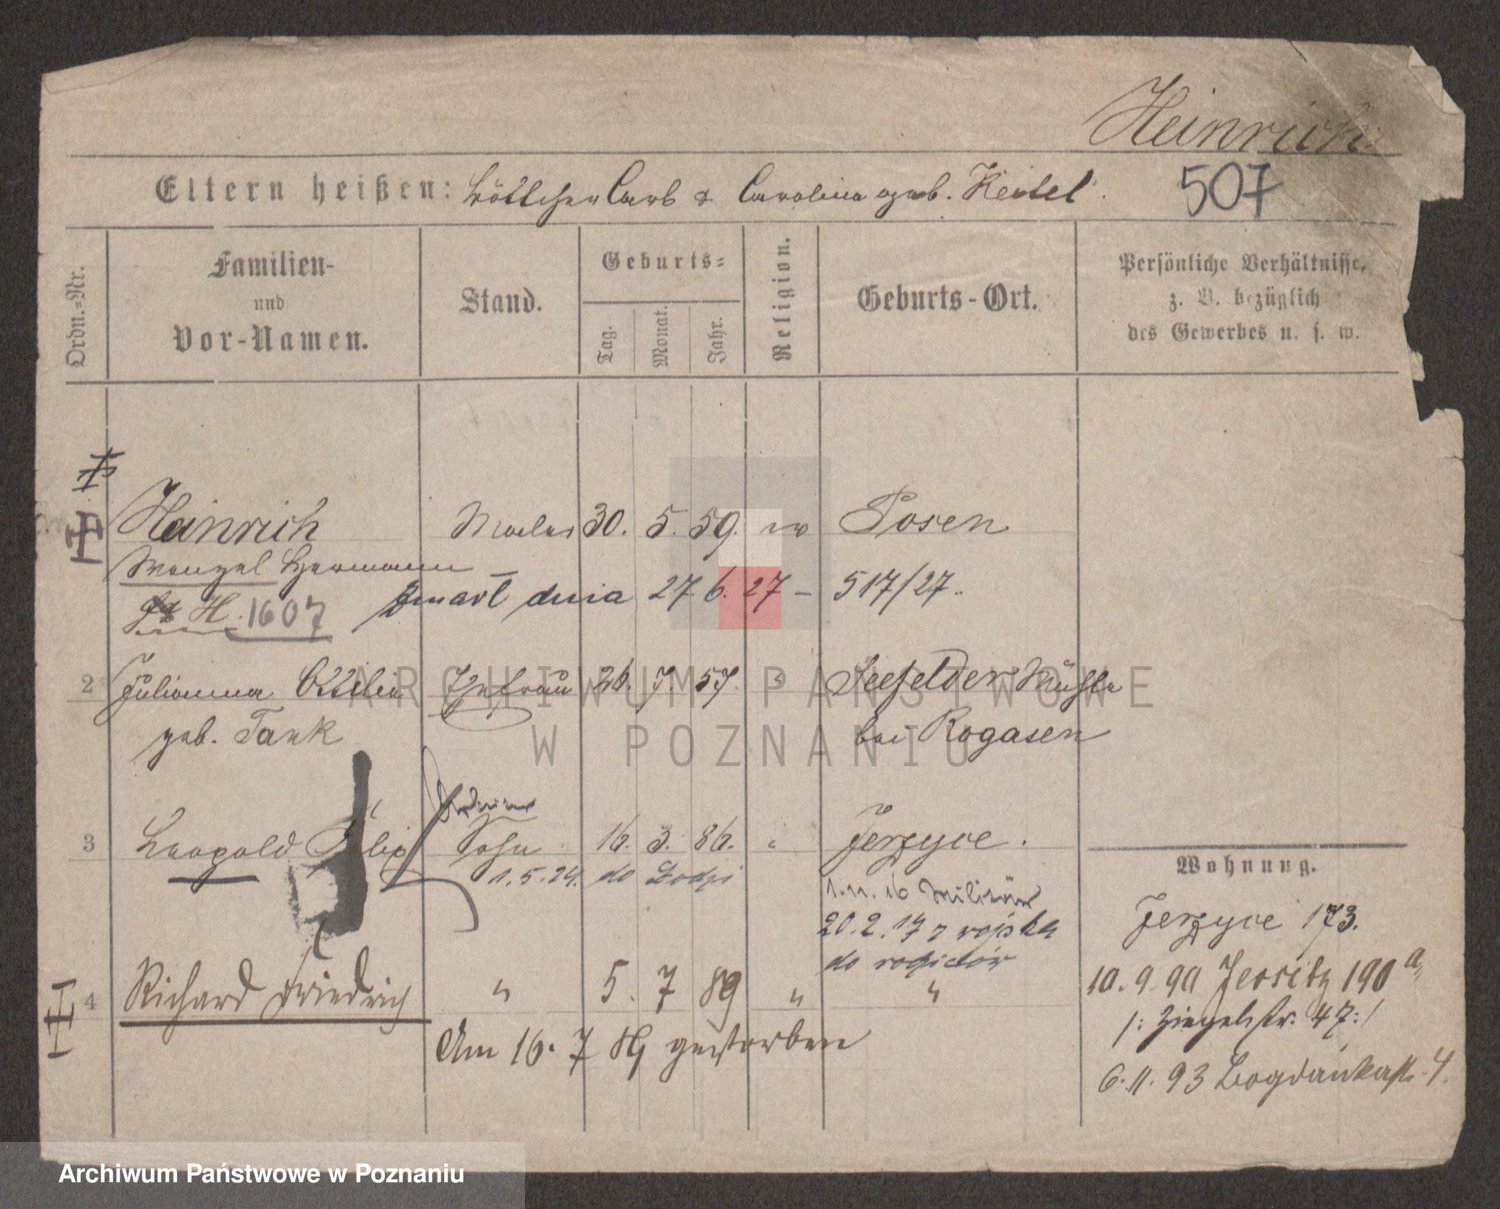 Heinrich
Eltern heißen: Böttcher Carl & Carolina geb. Keitel.
507
Ordn.-Nr.
Familien-
und
Vor-Namen.
Stand.
Geburts-
Tag.
Monat.
Jahr.
Religion.
Geburts-Ort.
Persönliche Verhältnisse,
z. B. bezüglich
des Gewerbes u. s. w.
Heinrich Maler 30. 5. 59. ev Posen
Wenzel Hermann
H. 1607 zmarł dnia 27 6. 27 – 517/27.
2 Julianna Ottilie Ehefrau 26. 7. 57. Seefelder Mühle
geb. Tank bei Rogasen
3 Leopold Felix Sohn 16. 3. 86. Jerzyce.
1.5.24. do Łodzi
1.11.16 Militär
20.2.19 z wojska
do rodziców
4 Richard Friedrich " 5. 7 89 " "
Am 16. 7 89 gestorben
Wohnung.
Jerzyce 173.
10.9.90 Jersitz 190a
/: Ziegelstr. 47:/
6.11.93 Bogdankastr. 4.
ARCHIWUM PAŃSTWOWE
W POZNANIU
Archiwum Państwowe w Poznaniu